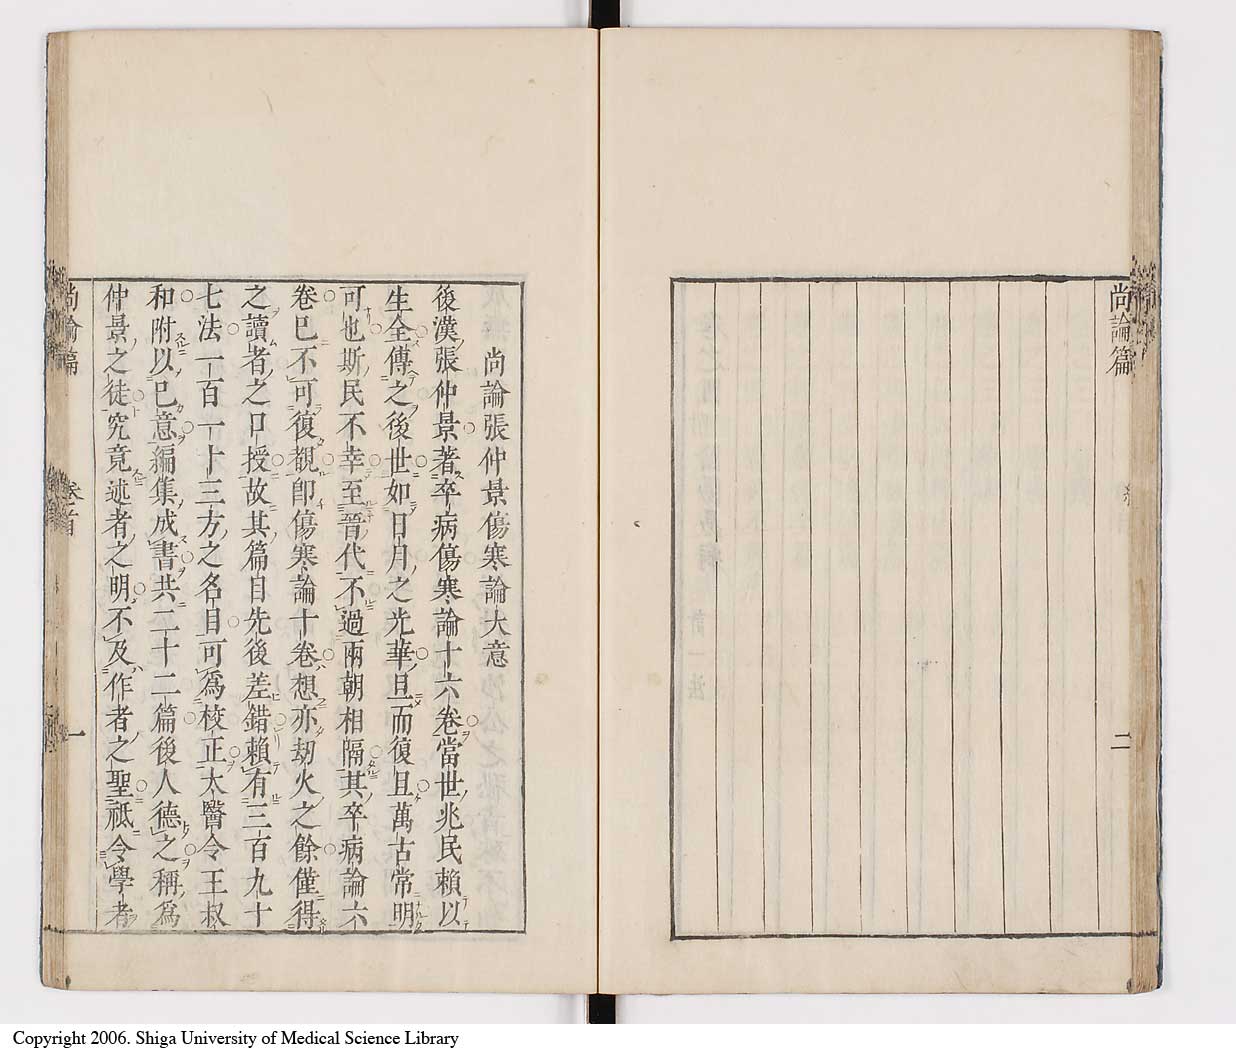 尚論篇
二
尚論張仲景傷寒論大意
後漢張仲景著卒病傷寒論十六卷當世兆民賴以
生全傳之後世如日月之光華旦而復旦萬古常明
可也斯民不幸至晉代不過兩朝相隔其卒病論六
卷已不可復覩卽傷寒論十卷想亦刼火之餘僅得
之讀者之口授故其篇目先後差錯賴有三百九十
七法一百一十三方之名目可爲校正太醫令王叔
和附以己意編集成書共二十二篇後人德之稱爲
仲景之徒究竟述者之明不及作者之聖祗令學者
尚論篇
卷首
一
Copyright 2006. Shiga University of Medical Science Library